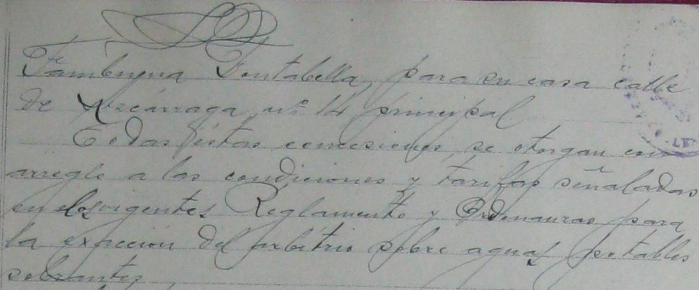 Fontabella, para su casa calle
de Azcárraga, nº 14 principal
Todas éstas concesiones se otorgan con
arreglo a las condiciones y tarifas señaladas
en los vigentes Reglamento y Ordenanzas para
la exacción del arbitrio sobre aguas potables
sobrantes,